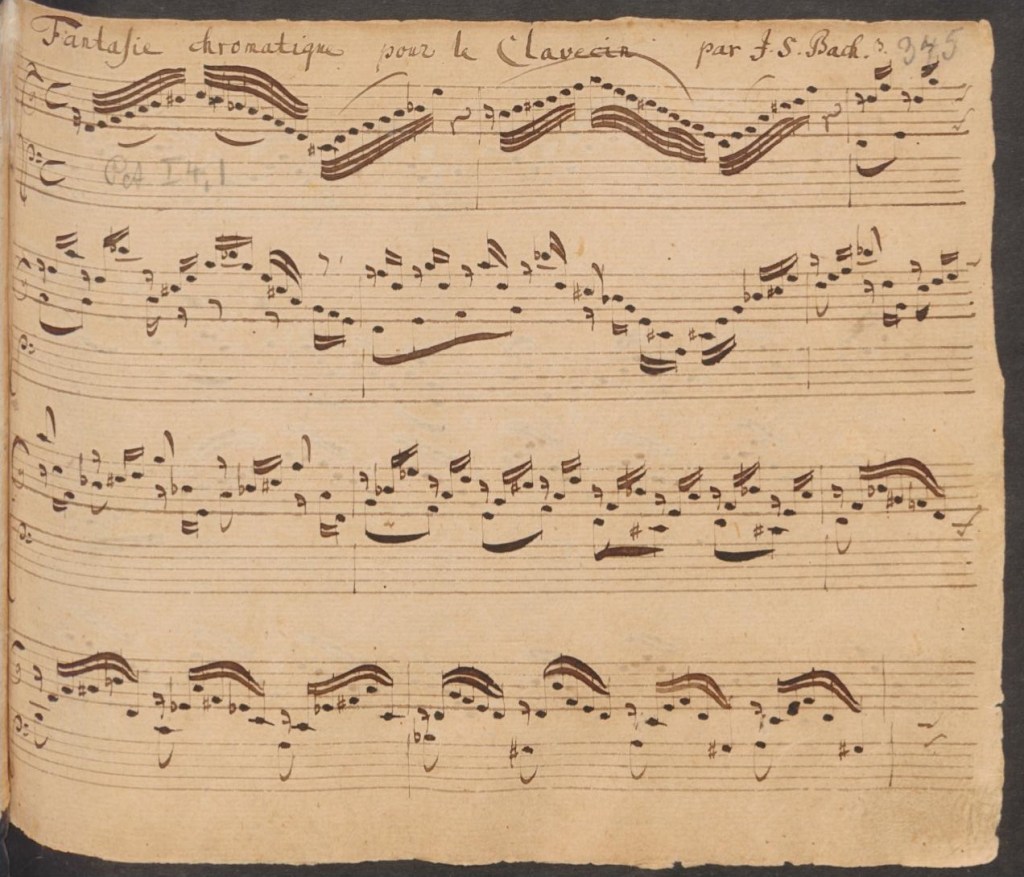 Fantasie chromatique pour le Clavecin par J. S. Bach. 345
PA I 4,1